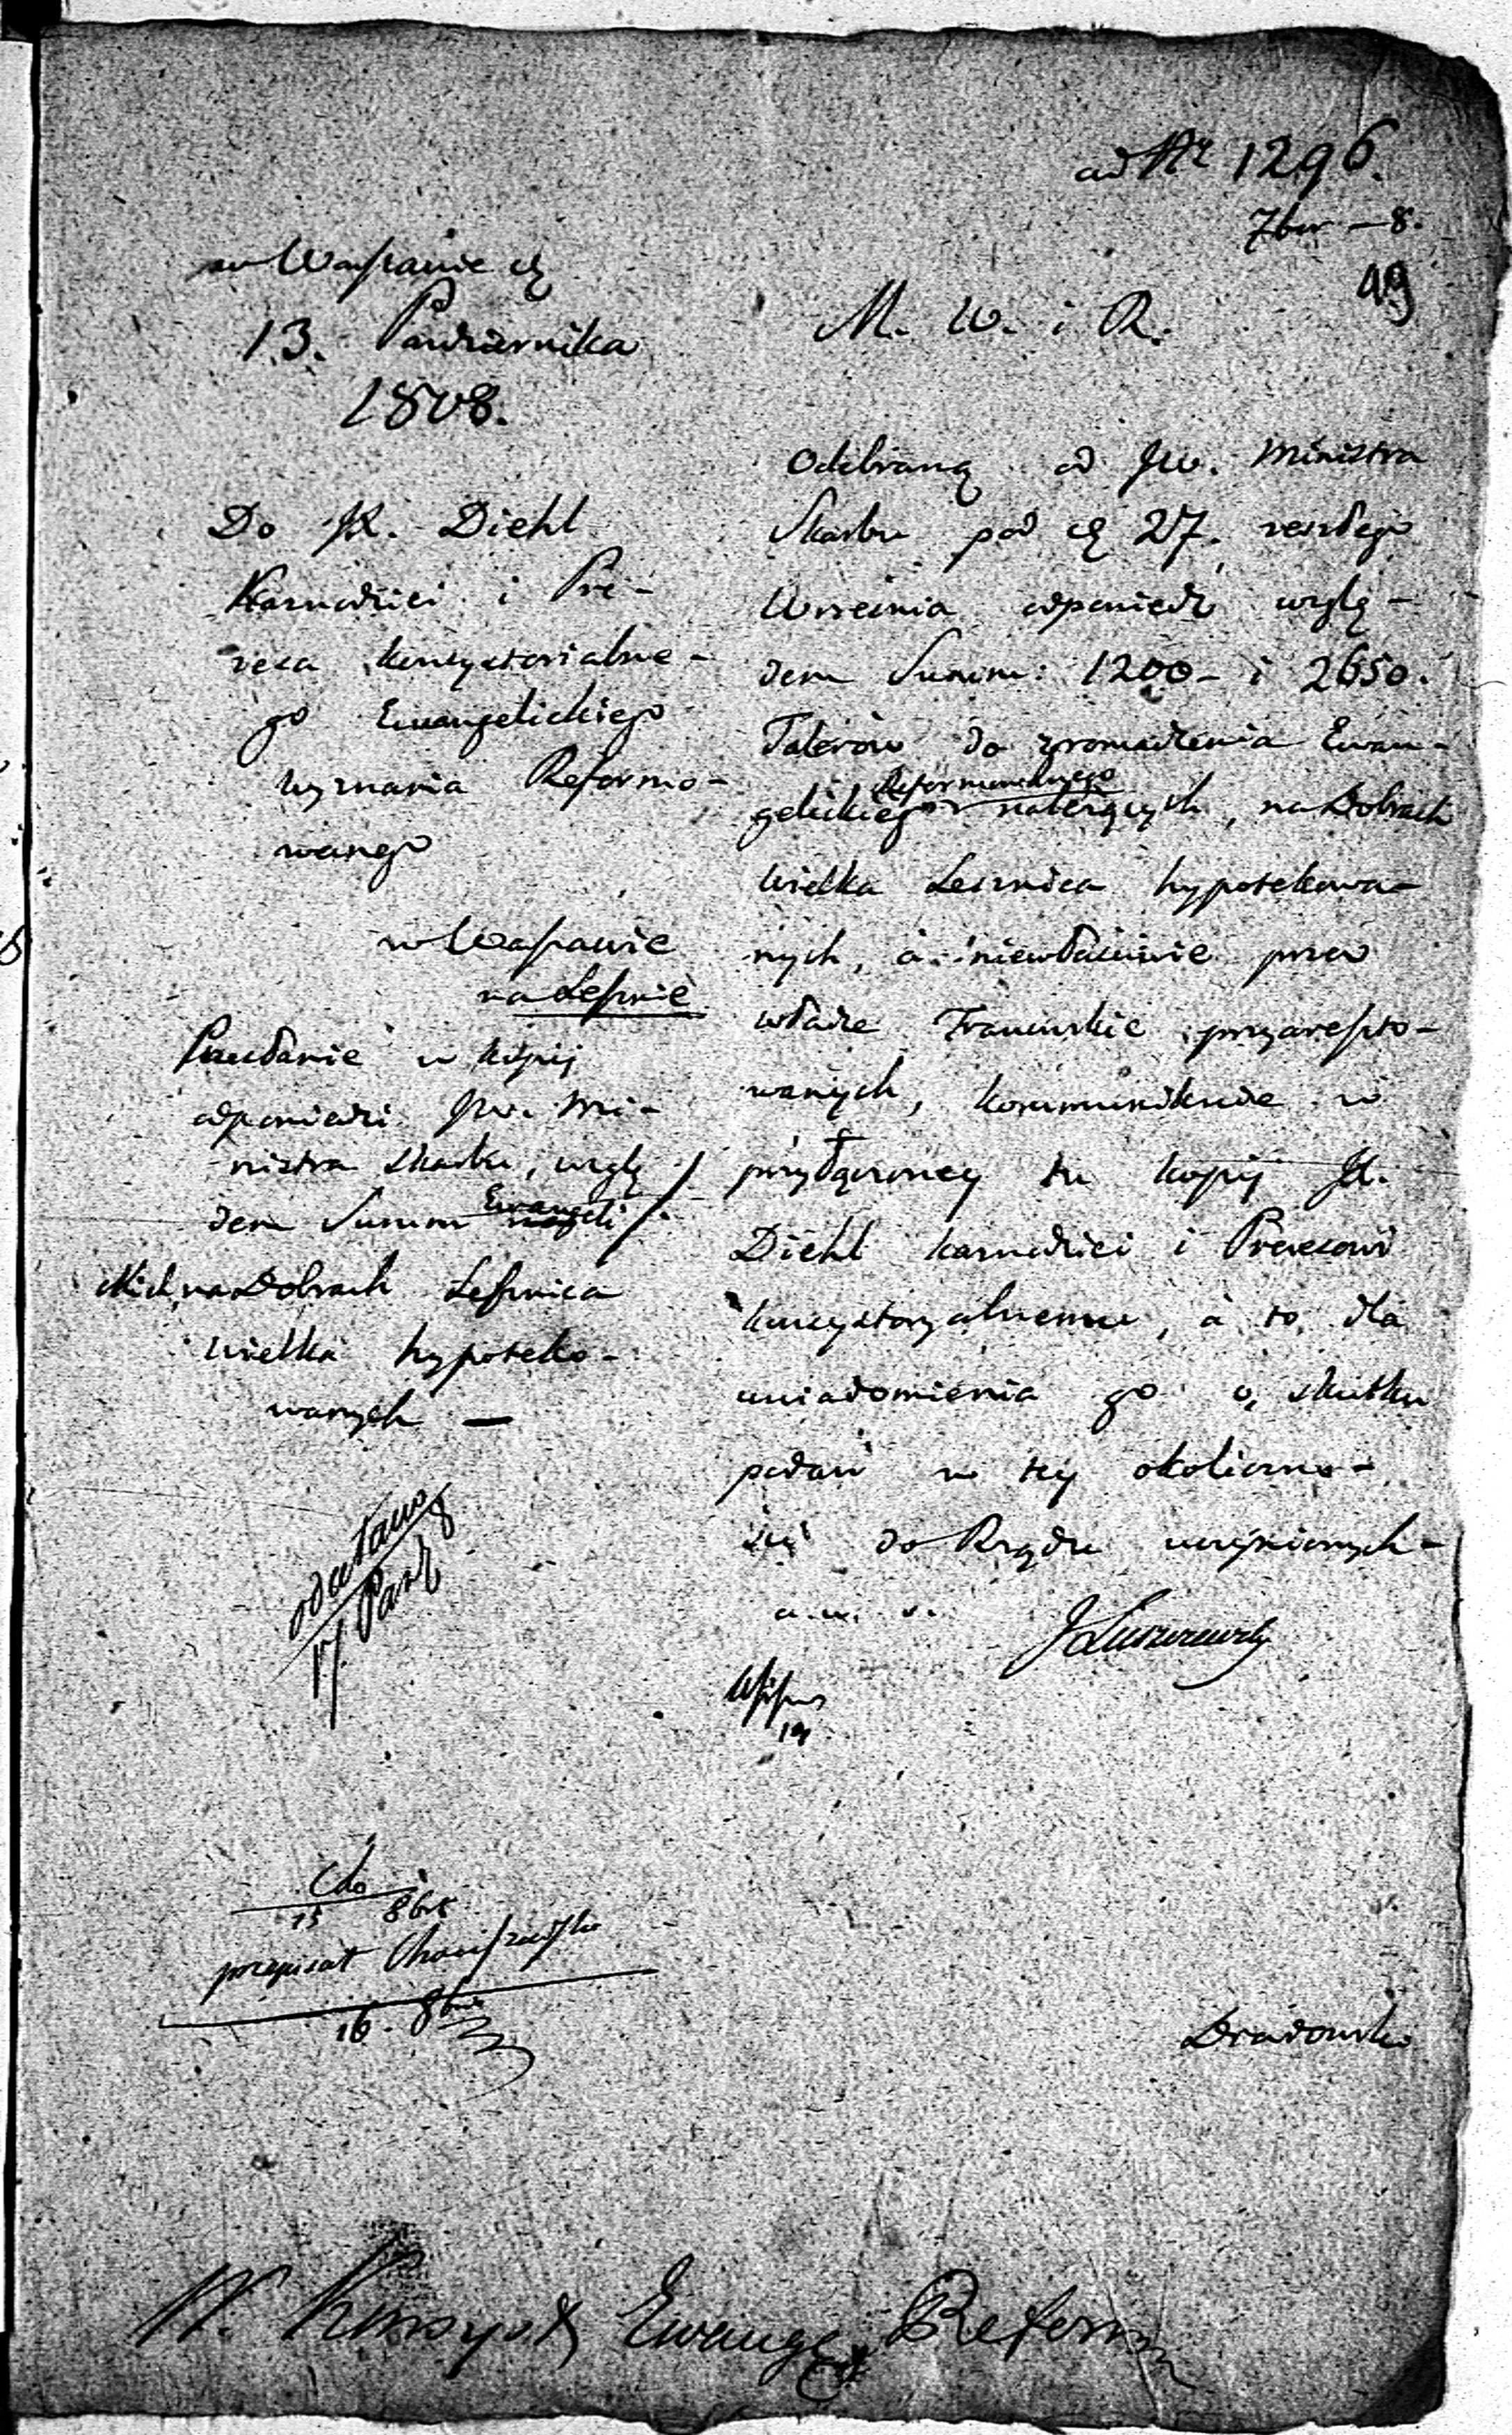 ad Nr 1296.
7br — 8.
49
w Warszawie d.
13. Pazdziernika
1808.
Do JX. Diehl
Kaznodziei i Pre-
zesa konsystorialne-
go Ewangelickiego
wyznania Reformo-
wanego
w Warszawie
na Lesznie
Przesłanie w kopij
odpowiedzi JW. Mi-
nistra Skarbu, wzglę
dem Summ Ewangeli
ckich, na Dobrach Lesznica
wielka hypoteko-
wanych —
odesłano
17 Paźd 8
Cdo
15 8br
przepisał
16. 8br
M. W. i R.
Odebraną od JW. Ministra
Skarbu pod d. 27. zeszłego
Września odpowiedź wzglę-
dem Summ: 1200 - i 2650.
Talerów do zgromadzenia Ewan-
gelickiego Reformowanego należących, na Dobrach
wielka Lesznica hypotekowa-
nych, a niewłaściwie przez
władze Francuskie przyareszto-
wanych, kommunikuie w
przyłączoney tu kopij JX.
Diehl kaznodziei i Prezesowi
konsystoryalnemu, a to dla
uwiadomienia go o skutku
podań w tey okoliczno-
ści do Rządu uczynionych -
JŁuszczewski
W. Konsyst Ewange Reform